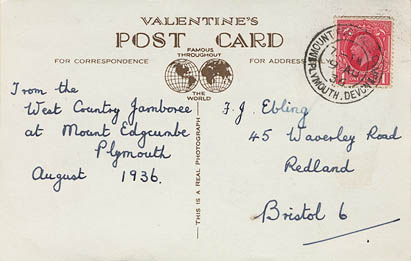 VALENTINE'S
POST CARD
FAMOUS
THROUGHOUT
THE
WORLD
FOR CORRESPONDENCE
FOR ADDRESS
From the
West Country Jamboree
at Mount Edgcumbe
Plymouth
August 1936.
THIS IS A REAL PHOTOGRAPH
F. J. Ebling
45 Waverley Road
Redland
Bristol 6
MOUNT
PLYMOUTH. DEVON